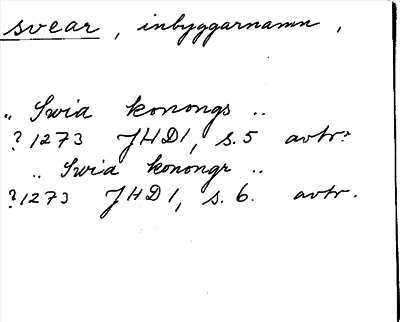 svear, inbyggarnamn,
„ Swia konongs ..
? 1273 JHD1, s. 5 avtr.
.. Swia konongr ..
? 1273 JHD1, s. 6. avtr.